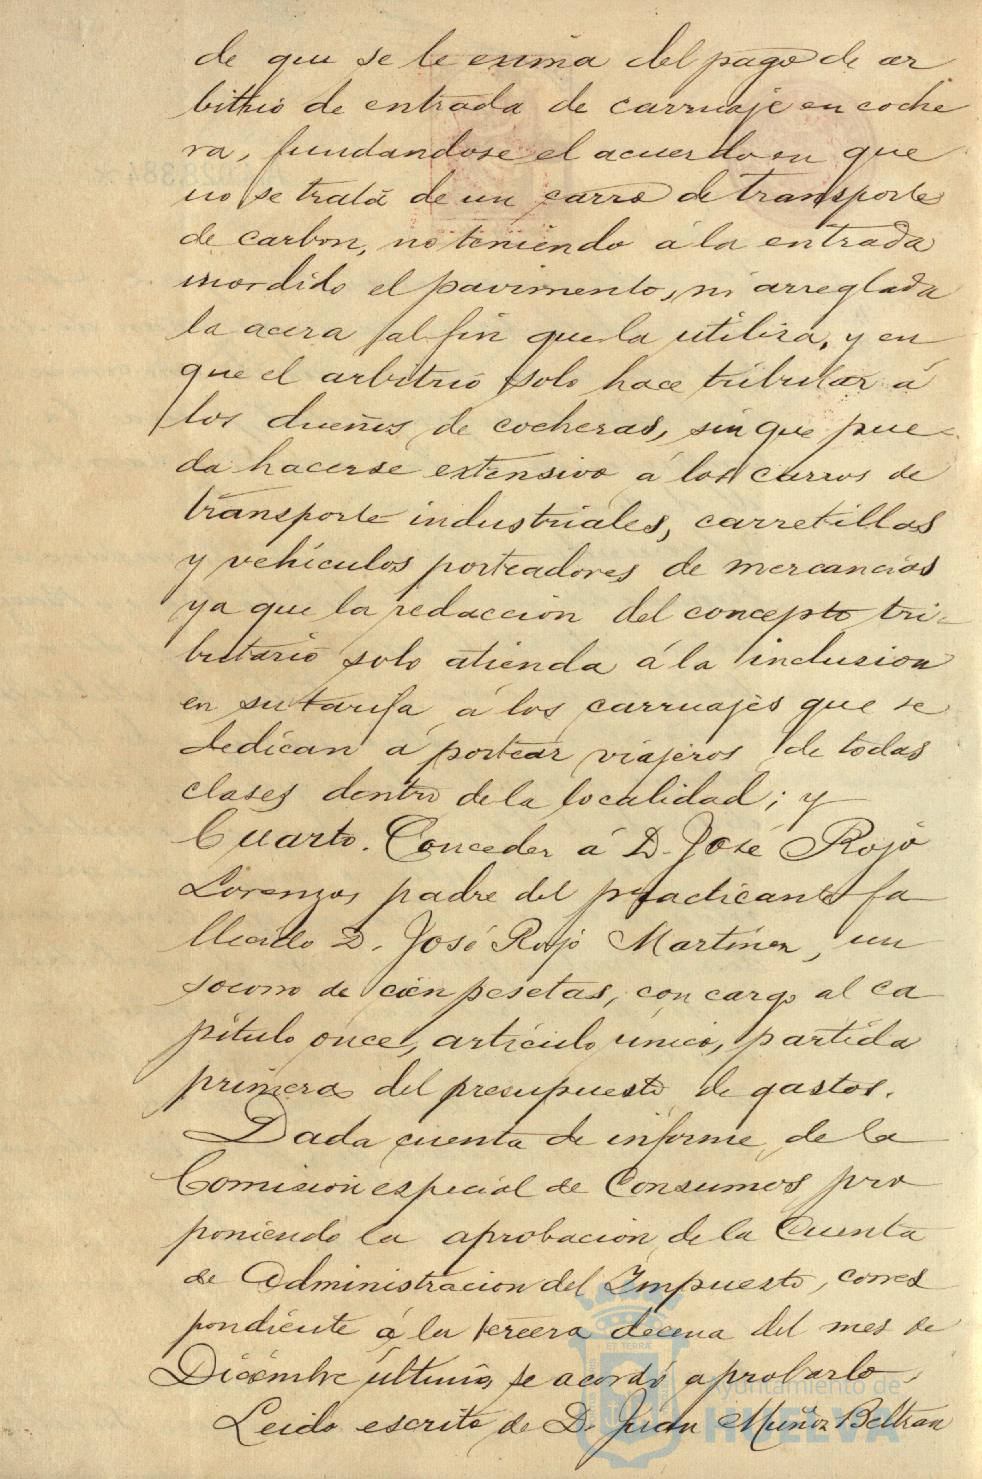 de que se le exima del pago de ar
bitrio de entrada de carruaje en coche
ra, fundandose el acuerdo en que
no se trata de un carro de transporte
de carbon, no teniendo á la entrada
mordido el pavimento, ni arreglada
la acera al fin que la utiliza, y en
que el arbitrio solo hace tributar á
los dueños de cocheras, sin que pue-
da hacerse extensivo á los carros de
transporte industriales, carretillas
y vehículos porteadores de mercancias
ya que la redaccion del concepto tri-
butario solo atienda á la inclusion
en su tarifa á los carruajes que se
dedican á portear viajeros de todas
clases dentro de la localidad; y
Cuarto. Conceder á D. José Rojo
Lorenzo, padre del practicante fa
llecido D. José Rojo Martinez, un
socorro de cien pesetas, con cargo al ca
pítulo once, artículo único, partida
primera del presupuesto de gastos.
Dada cuenta de informe de la
Comision especial de Consumos pro
poniendo la aprobacion de la Cuenta
de Administracion del Impuesto, corres
pondiente á la tercera decena del mes de
Diciembre último, se acordó aprobarlo.
Leido escrito de D. Juan Muñoz Beltran
Ayuntamiento de
HUELVA